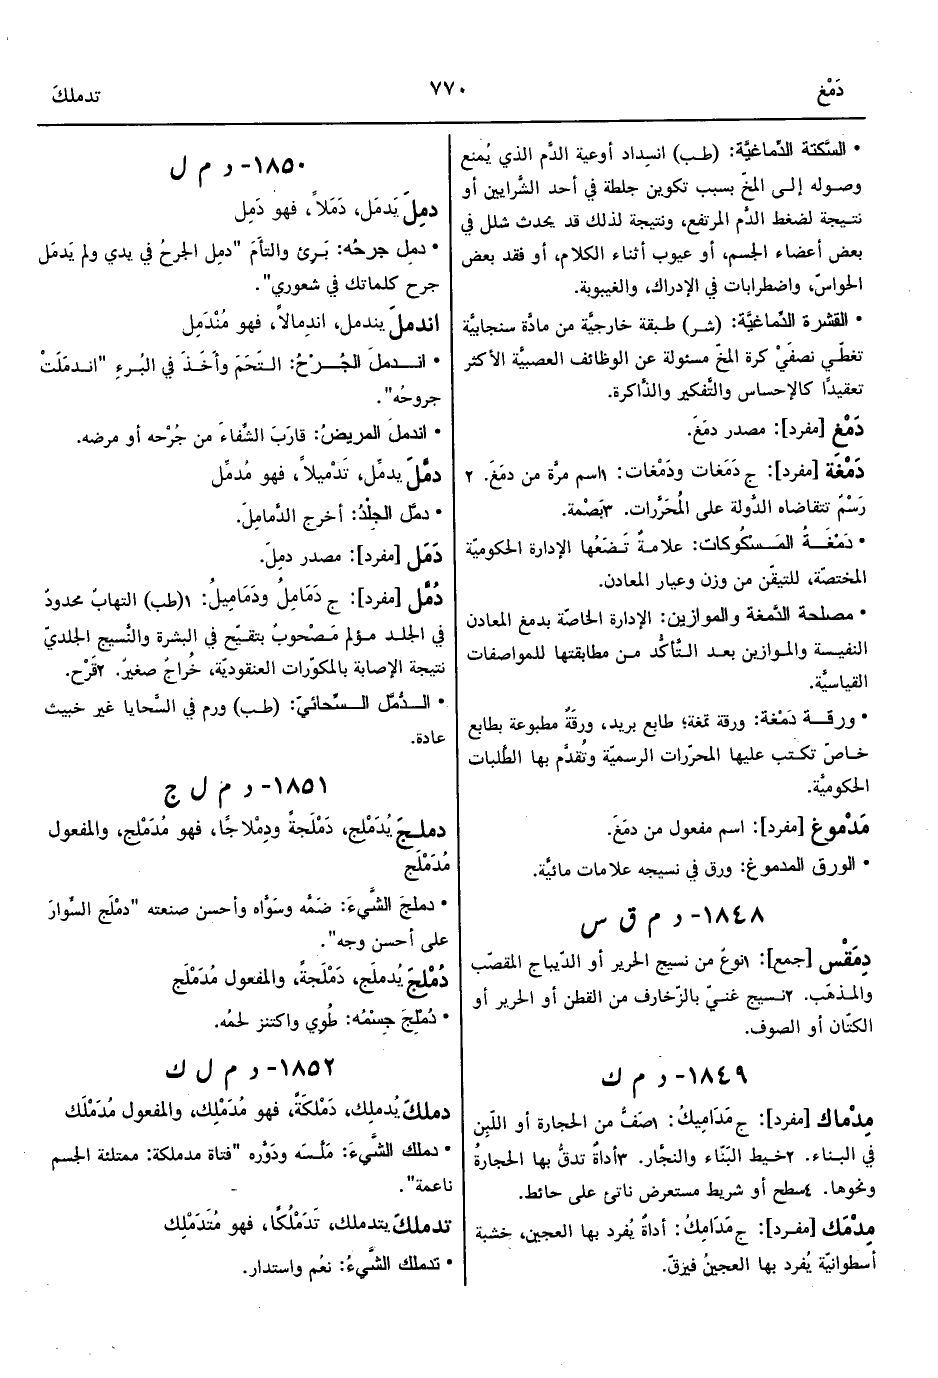 دَمْغ
٧٧٠
تدملكَ
• السَّكتة الدِّماغيَّة: (طب) انسِداد أوعية الدَّم الذي يُمنع
وصوله إلى المخّ بسبب تكوين جلطة في أحد الشَّرايين أو
نتيجة لضغط الدَّم المرتفع، ونتيجة لذلك قد يحدث شلل في
بعض أعضاء الجسم، أو عيوب أثناء الكلام، أو فقد بعض
الحواسّ، واضطرابات في الإدراك، والغيبوبة.
• القشرة الدِّماغيَّة: (شر) طبقة خارجيَّة من مادَّة سنجابيَّة
تغطِّي نصفَيْ كرة المخّ مسئولة عن الوظائف العصبيَّة الأكثر
تعقيدًا كالإحساس والتَّفكير والذَّاكرة.
دَمْغ [مفرد]: مصدر دمَغَ.
دَمْغَة [مفرد]: ج دَمَغات ودَمْغات: ١اسم مرَّة من دمَغَ. ٢
رَسْمٌ تتقاضاه الدَّولة على المُحَرَّرات. ٣بَصْمة.
• دَمْغَةُ المَسْكوكات: علامةٌ تَضَعُها الإدارة الحكوميَّة
المختصّة، للتيقّن من وزن وعيار المعادن.
• مصلحة الدَّمغة والموازين: الإدارة الخاصّة بدمغ المعادن
النفيسة والموازين بعد التَّأكُّد من مطابقتها للمواصفات
القياسيَّة.
• ورقة دَمْغة: ورقة تمغة؛ طابع بريد، ورقَةٌ مطبوعة بطابع
خاصّ تكتب عليها المحرّرات الرسميَّة وتُقدَّم بها الطَّلبات
الحكوميَّة.
مَدْموغ [مفرد]: اسم مفعول من دمَغَ.
• الورق المدموغ: ورق في نسيجه علامات مائيَّة.
١٨٤٨- د م ق س
دِمَقْس [جمع]: ١نوعٌ من نسيج الحرير أو الدِّيباج المقصّب
والمذهّب. ٢نسيج غنيّ بالزّخارف من القطن أو الحرير أو
الكتّان أو الصوف.
١٨٤٩- د م ك
مِدْماك [مفرد]: ج مَدَاميكُ: ١صَفٌّ من الحجارة أو اللَّبِن
في البناء. ٢خيط البَنّاء والنجَّار. ٣أداةٌ تدقُّ بها الحجارةُ
ونحوها. ٤سطح أو شريط مستعرض ناتئ على حائط.
مِدْمَك [مفرد]: ج مَدَامِكُ: أداةٌ يُفرد بها العجين، خشبة
أسطوانيّة يُفرد بها العجينُ فيرَقّ.
١٨٥٠- د م ل
دمِلَ يَدمَل، دَمَلاً، فهو دَمِل
• دمِل جرحُه: بَرئ والتأمَ "دمِل الجرحُ في يدي ولم يَدمَل
جرح كلماتك في شعوري".
اندملَ يندمل، اندمالاً، فهو مُنْدَمِل
• اندملَ الجُرحُ: التَحَمَ وأخَذَ في البُرءِ "اندمَلَتْ
جروحُه".
• اندمل المريضُ: قارَبَ الشِّفاءَ من جُرْحه أو مرضه.
دمَّلَ يدمِّل، تَدْميلاً، فهو مُدمِّل
• دمَّل الجِلْدُ: أخرج الدَّمامِلَ.
دَمَل [مفرد]: مصدر دمِلَ.
دُمَّل [مفرد]: ج دَمَامِلُ ودَمَاميلُ: ١(طب) التهابٌ محدودٌ
في الجلد مؤلم مَصْحوبٌ بتقيّح في البشرة والنَّسيج الجلديّ
نتيجة الإصابة بالمكوّرات العنقوديّة، خُراجٌ صغيرٌ. ٢قَرْح.
• الدُّمَّل السِّحائيّ: (طب) ورم في السَّحايا غير خبيث
عادة.
١٨٥١- د م ل ج
دملجَ يُدَمْلِج، دَمْلَجةً ودِمْلاجًا، فهو مُدَمْلِج، والمفعول
مُدَمْلَج
• دملجَ الشَّيءَ: ضَمَّه وسَوَّاه وأحسن صنعته "دمْلَج السِّوارَ
على أحسن وجه".
دُمْلِجَ يُدملَج، دَمْلَجةً، والمفعول مُدَمْلَج
• دُمْلِجَ جِسْمُه: طُوي واكتنز لحمُه.
١٨٥٢- د م ل ك
دملكَ يُدملِك، دَمْلكَةً، فهو مُدَمْلِك، والمفعول مُدَمْلَك
• دملك الشَّيءَ: مَلَّسه ودَوَّره "فتاة مدملكة: ممتلئة الجسم
ناعمة".
تدملكَ يتدملك، تَدَمْلُكًا، فهو مُتَدَمْلِك
• تدملك الشَّيءُ: نعُم واستدار.